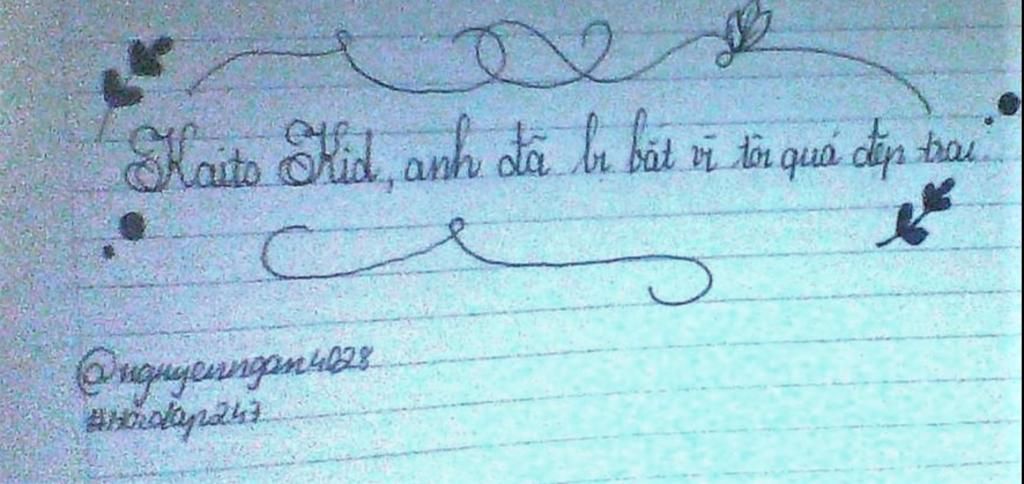 Kaito Kid, anh đã bị bắt vì tội quá đẹp trai
@nguyenngan4028
#Hoidap247